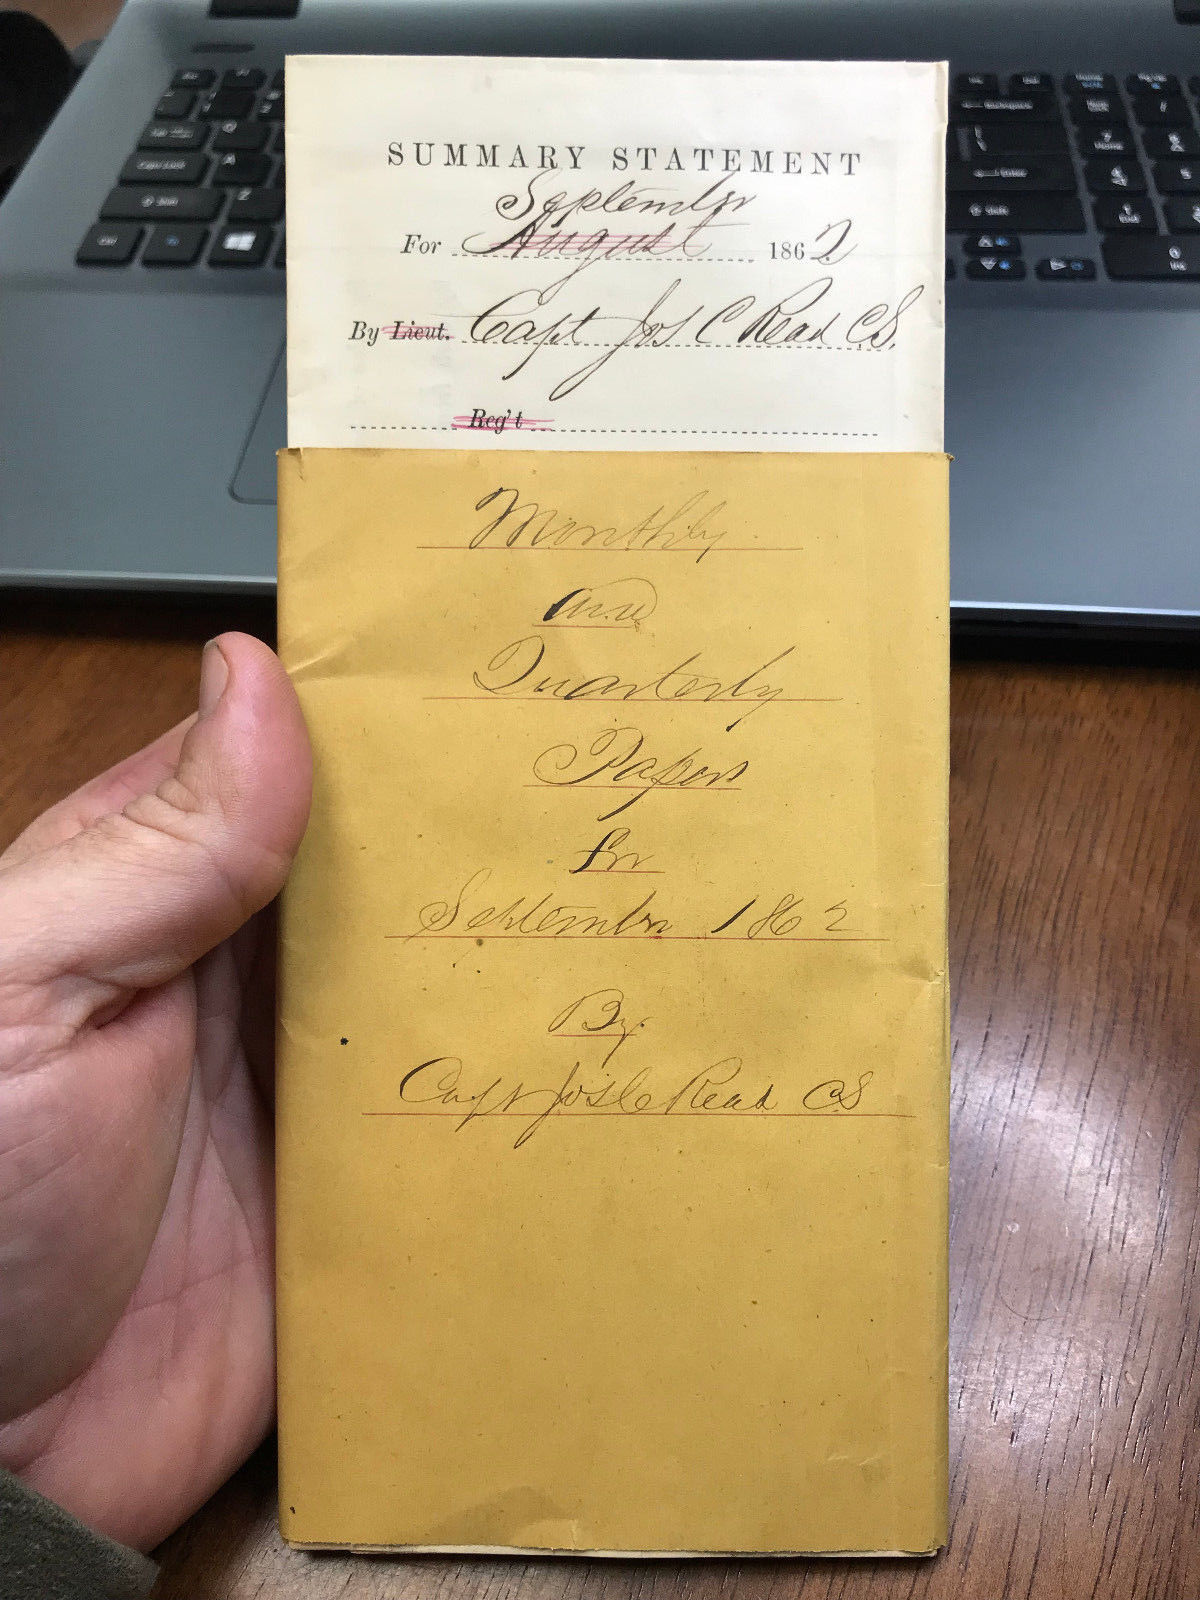 SUMMARY STATEMENT
September
For August 1862
By Lieut. Capt Jos C Read CS.
Reg't
Monthly
and
Quarterly
Papers
for
September 1862
By
Capt Jos C Read CS